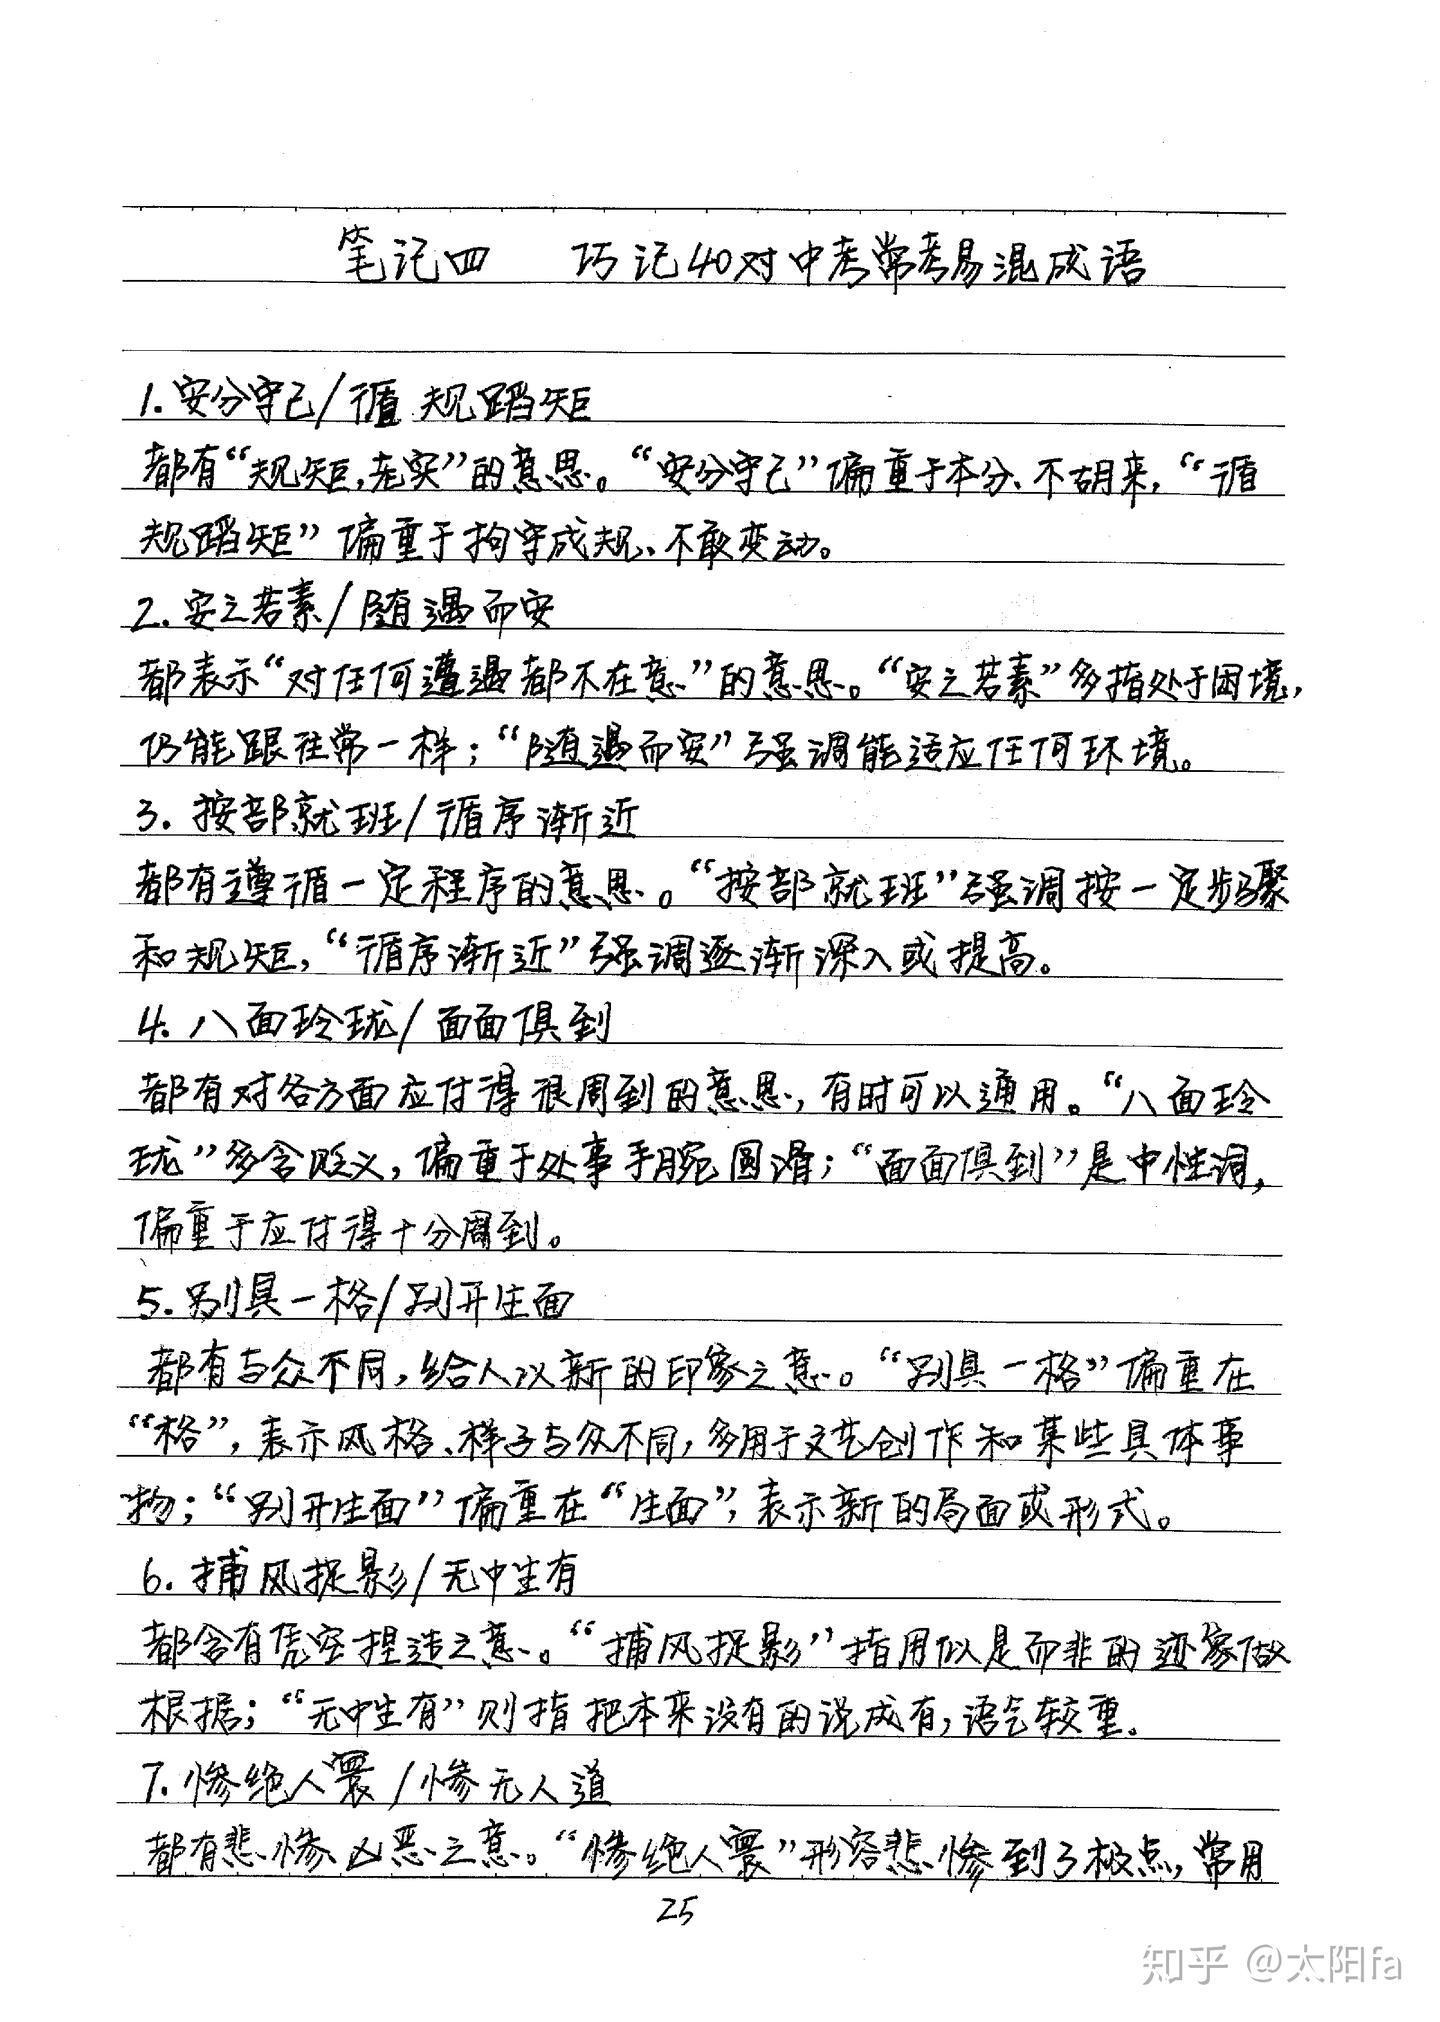 笔记四 巧记40对中考常考易混成语
1.安分守己/循规蹈矩
都有“规矩,老实”的意思。“安分守己”偏重于本分、不胡来,“循
规蹈矩”偏重于拘守成规、不敢变动。
2.安之若素/随遇而安
都表示“对任何遭遇都不在意”的意思。“安之若素”多指处于困境,
仍能跟往常一样;“随遇而安”强调能适应任何环境。
3.按部就班/循序渐近
都有遵循一定程序的意思。“按部就班”强调按一定步骤
和规矩,“循序渐近”强调逐渐深入或提高。
4.八面玲珑/面面俱到
都有对各方面应付得很周到的意思,有时可以通用。“八面玲
珑”多含贬义,偏重于处事手腕圆滑;“面面俱到”是中性词,
偏重于应付得十分周到。
5.别具一格/别开生面
都有与众不同,给人以新的印象之意。“别具一格”偏重在
“格”,表示风格、样子与众不同,多用于文艺创作和某些具体事
物;“别开生面”偏重在“生面”,表示新的局面或形式。
6.捕风捉影/无中生有
都含有凭空捏造之意。“捕风捉影”指用似是而非的迹象做
根据;“无中生有”则指把本来没有的说成有,语气较重.
7.惨绝人寰/惨无人道
都有悲惨凶恶之意。“惨绝人寰”形容悲惨到了极点,常用
25
知乎 @太阳fa